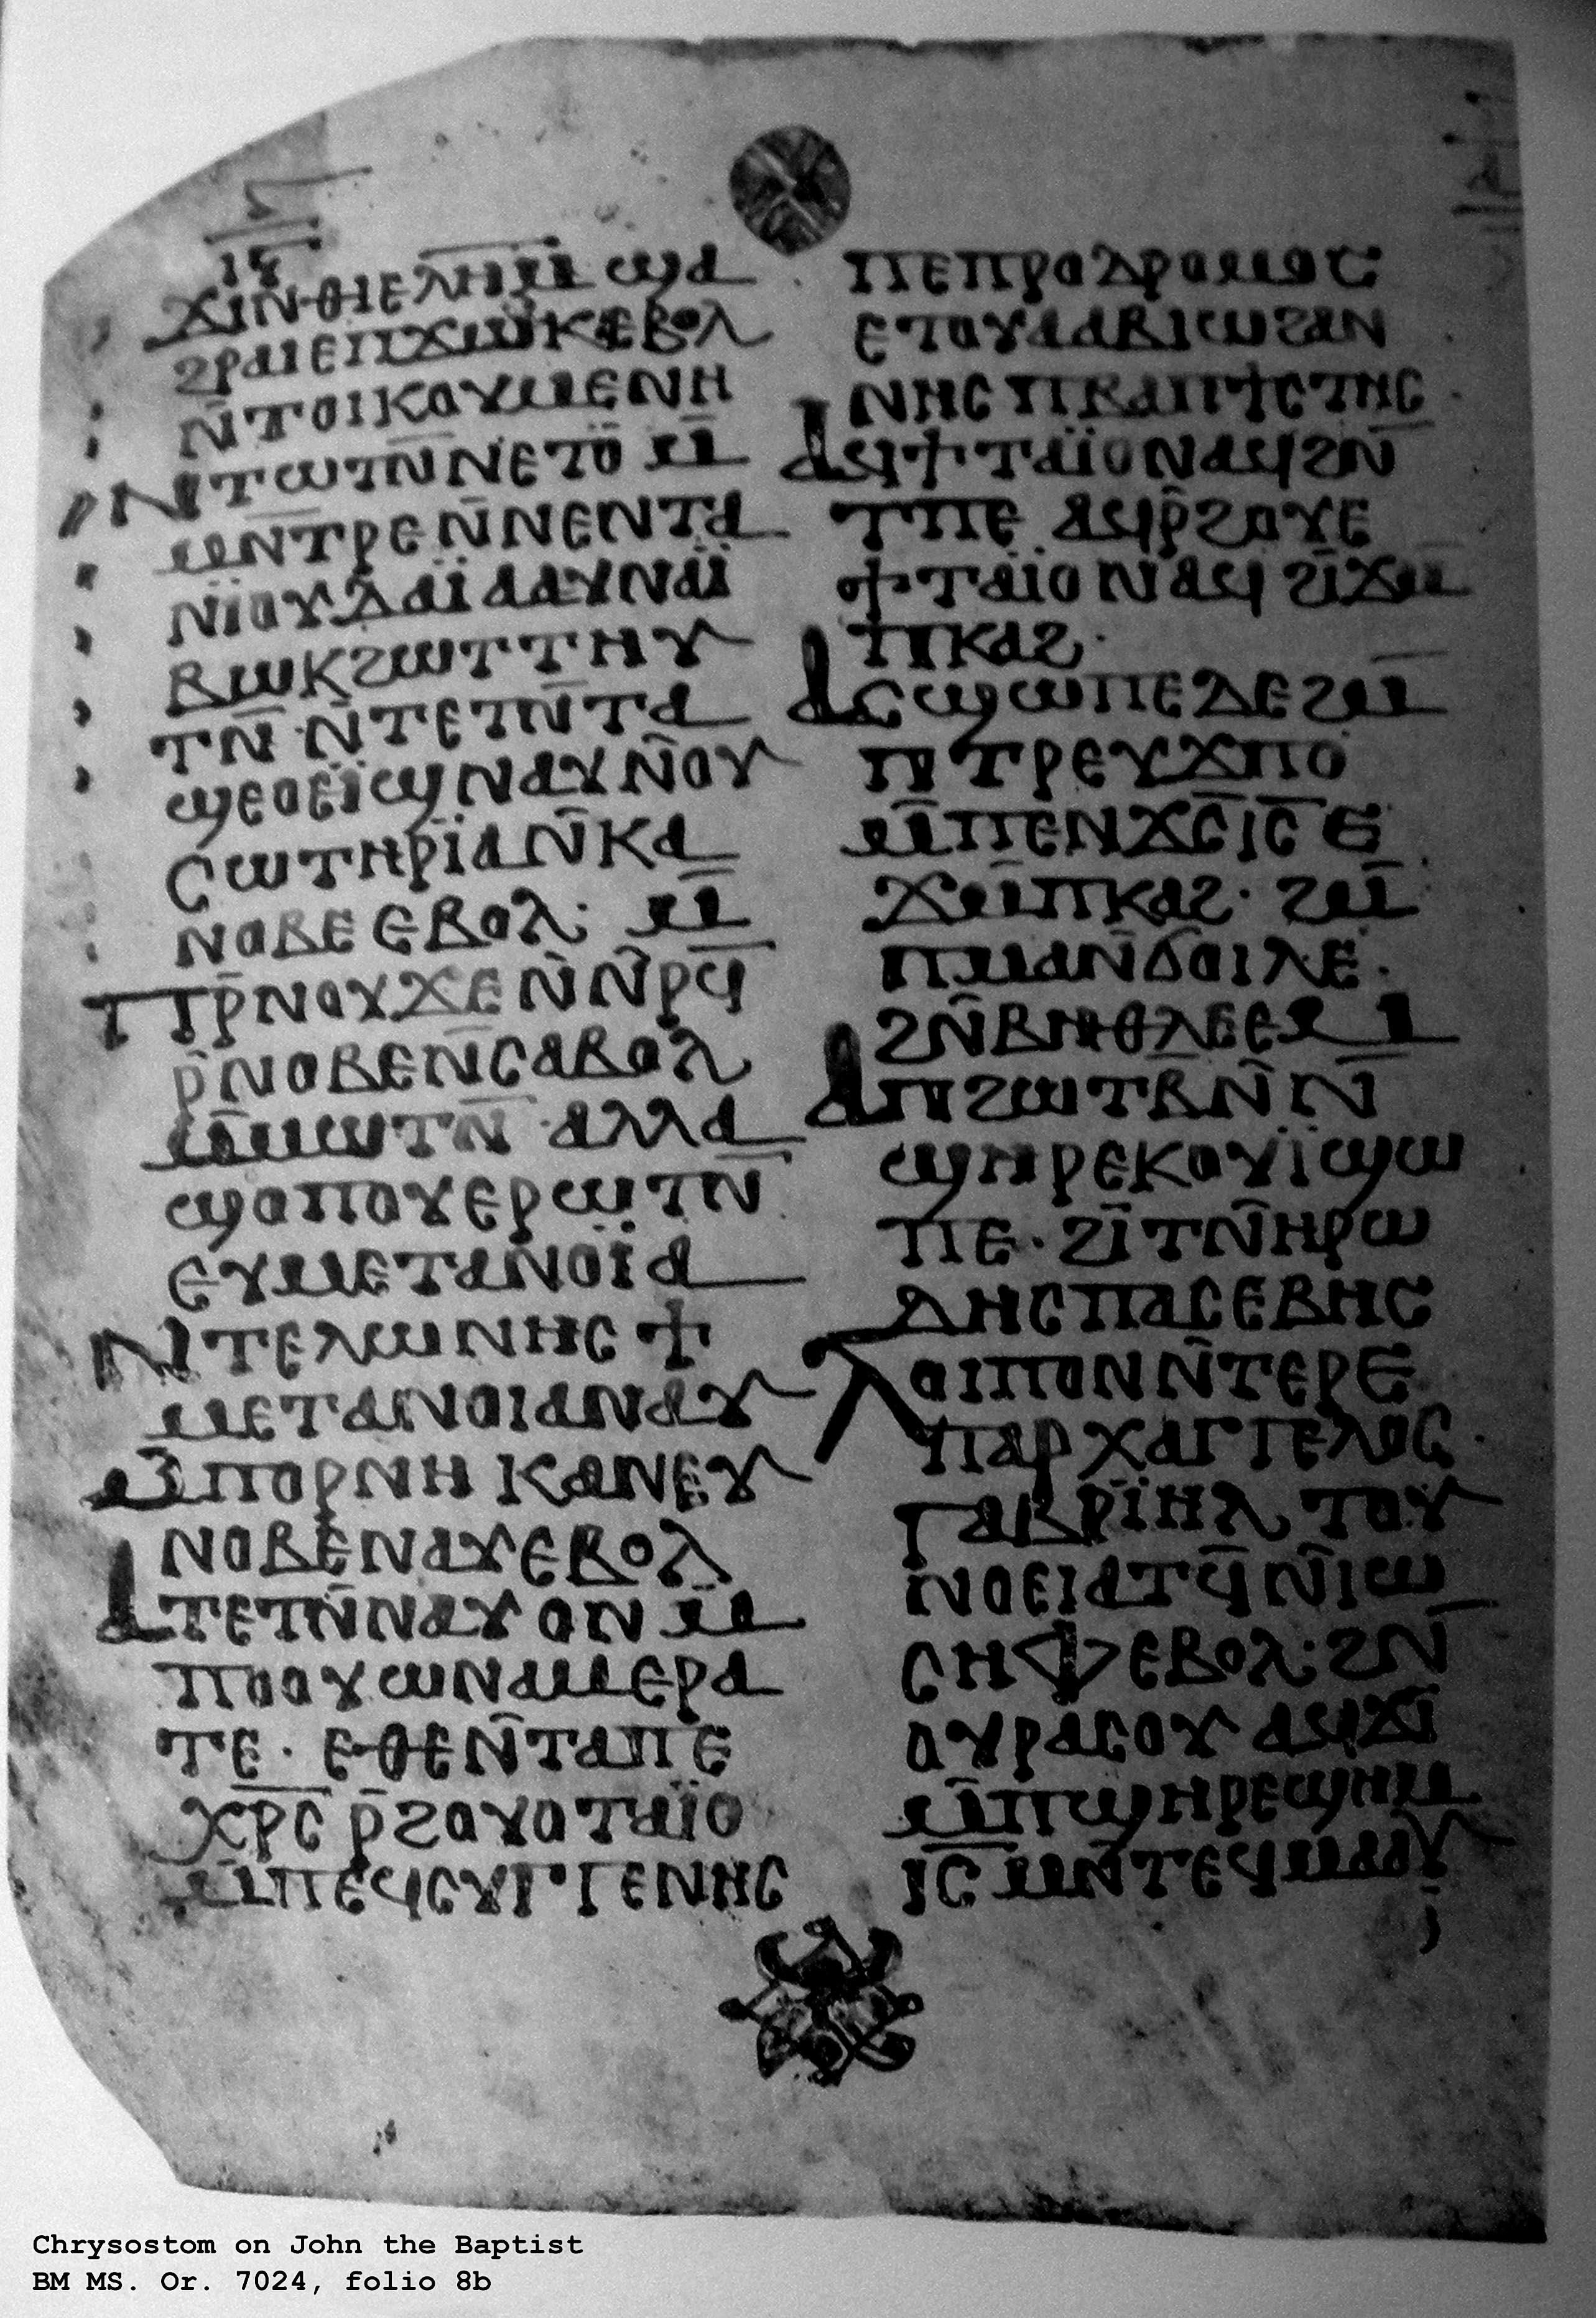 ⲓ̅ⲋ̅
ϫⲓⲛⲑⲓⲉⲗⲏ̅ⲙ̅ ϣⲁ
ϩⲣⲁⲓⲉⲡϫⲱⲕⲉⲃⲟⲗ
ⲛ̄ⲧⲟⲓⲕⲟⲩⲙⲉⲛⲏ
ⲛⲧⲱⲧⲛ̄ⲛⲉⲧⲟ̈ ⲙ̄
ⲙⲛ̄ⲧⲣⲉⲛ̄ⲛⲉⲛⲧⲁ
ⲛⲓ̈ⲟⲩⲇⲁⲓ̈ⲁⲁⲩⲛⲁⲓ̈
ⲃⲱⲕϩⲱⲧⲧⲏⲩ
ⲧⲛ̄ ⲛ̄ⲧⲉⲧⲛ̄ⲧⲁ
ϣⲉⲟⲉⲓ̈ϣⲛⲁⲩⲛ̄ⲟⲩ
ⲥⲱⲧⲏⲣⲓ̈ⲁⲛ̄ⲕⲁ
ⲛⲟⲃⲉ ⲉⲃⲟⲗ· ⲙ̄
ⲡⲣ̄ⲛⲟⲩϫⲉⲛ̄ⲛ̄ⲣϥ̄
ⲣ̄ⲛⲟⲃⲉⲛ̄ⲥⲁⲃⲟⲗ
ⲙ̄ⲙⲱⲧⲛ̄ ·ⲁⲗⲗⲁ
ϣⲟⲡⲟⲩⲉⲣⲱⲧⲛ̄
ⲉⲩⲙⲉⲧⲁⲛⲟⲓ̈ⲁ
ⲛⲧⲉⲗⲱⲛⲏⲥ ϯ
ⲙⲉⲧⲁⲛⲟⲓⲁⲛⲁⲩ
ⲙ̄ⲡⲟⲣⲛⲏ ⲕⲁⲛⲉⲩ
ⲛⲟⲃⲉⲛⲁⲩⲉⲃⲟⲗ
ⲁⲧⲉⲧⲛ̄ⲛⲁⲩ ⲟⲛ ⲙ̄
ⲡⲟⲟⲩⲱⲛⲁⲙⲉⲣⲁ
ⲧⲉ · ⲉⲑⲉⲛ̄ⲧⲁⲡⲉ
ⲭ̅ⲣ̅ⲥ̅ ⲣ̄ϩⲟⲩⲟⲧⲁⲓ̈ⲟ
ⲙ̄ⲡⲉϥⲥⲩⲅⲅⲉⲛⲏⲥ
ⲡⲉⲡⲣⲟⲇⲣⲟⲙⲟⲥ
ⲉⲧⲟⲩⲁⲁⲃⲓⲱϩⲁⲛ
ⲛⲏⲥ ⲡⲃⲁⲡϯⲥⲧⲏⲥ
ⲁϥϯⲧⲁⲓ̈ⲟⲛⲁϥϩⲛ̄
ⲧⲡⲉ ⲁϥⲣ̄ϩⲟⲩⲉ
ϯⲧⲁⲓ̈ⲟ ⲛⲁϥ ϩⲓϫⲙ̄
ⲡⲕⲁϩ·
ⲁⲥϣⲱⲡⲉⲇⲉϩⲙ̄
ⲡⲧⲣⲉⲩϫⲡⲟ
ⲙ̄ⲡⲉⲛϫ̅ⲥ̅ⲓ̅ⲥ̅ ⲉ
ϫⲙ̄ⲡⲕⲁϩ· ϩⲙ̄
ⲡⲙⲁⲛ̄ϭⲟⲓⲗⲉ·
ϩⲛ̄ⲃⲏⲑⲗⲉⲉⲙ
ⲁⲡϩⲱⲧⲃ̄ⲛ̄ ⲛ̄
ϣⲏⲣⲉⲕⲟⲩⲓ̈ϣⲱ
ⲡⲉ· ϩⲓ̈ⲧⲛ̄ⲏⲣⲱ
ⲇⲏⲥⲡⲁⲥⲉⲃⲏⲥ
ⲗⲟⲓⲡⲟⲛⲛ̄ⲧⲉⲣⲉ
ⲡⲁⲣⲭⲁⲅⲅⲉⲗⲟⲥ·
ⲅⲁⲃⲣⲓ̈ⲏⲗ ⲧⲟⲩ
ⲛⲟⲉⲓⲁⲧϥ̄ⲛ̄ⲓⲱ
ⲥⲏⲫⲉⲃⲟⲗ·ϩⲛ̄
ⲟⲩⲣⲁⲥⲟⲩ ⲁϥϫⲓ
ⲙ̄ⲡϣⲏⲣⲉϣⲏⲙ
ⲓ̅ⲥ̅ ⲙⲛ̄ⲧⲉϥⲙⲁⲁⲩ
Chrysostom on John the Baptist
BM MS. Or. 7024, folio 8b